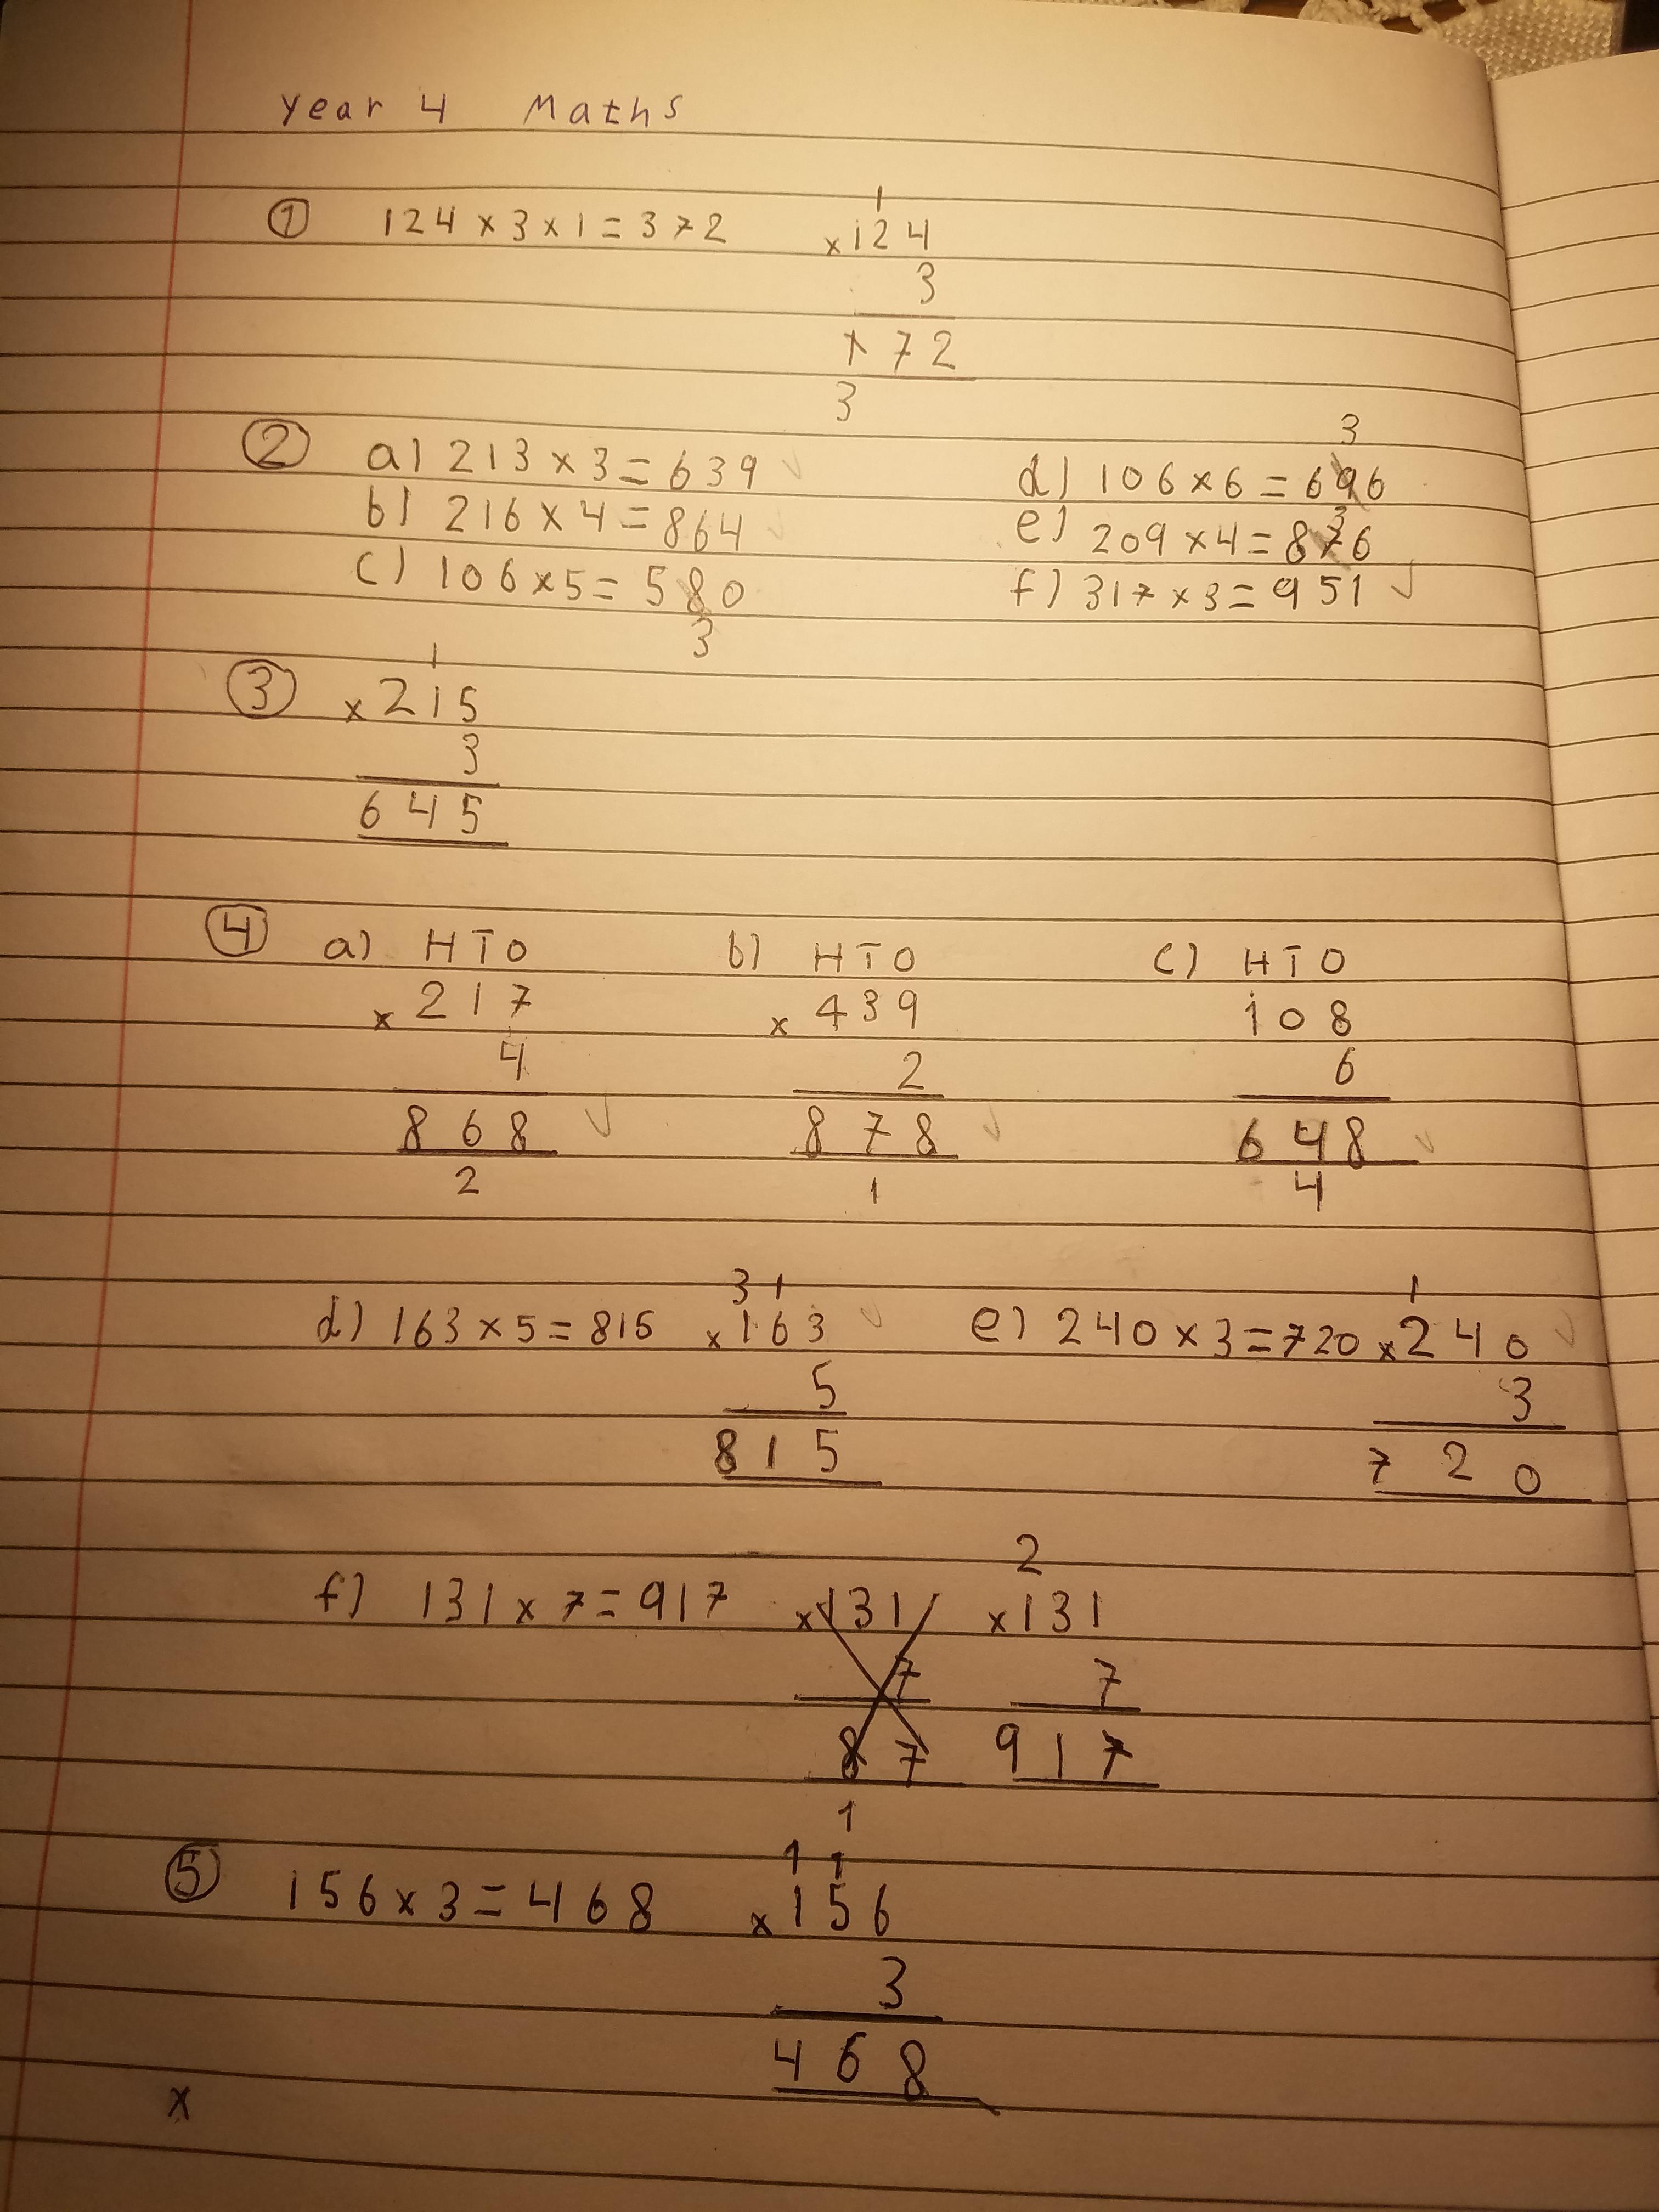 Year 4 Maths
① 124 × 3 × 1 = 372
1
× 124
3
1 72
3
② a) 213 × 3 = 639 ✓
b) 216 × 4 = 864 ✓
c) 106 × 5 = 580
3
3
d) 106 × 6 = 696
3
e) 209 × 4 = 876
f) 317 × 3 = 951 ✓
③
1
× 215
3
645
④ a) HTO
× 217
4
868 ✓
2
b) HTO
× 439
2
878 ✓
1
c) HTO
108
6
648 ✓
4
d) 163 × 5 = 815
3 1
× 163 ✓
5
815
e) 240 × 3 = 720
1
× 240 ✓
3
720
f) 131 × 7 = 917
× 131
7
87
1
2
× 131
7
917
⑤ 156 × 3 = 468
1 1
× 156
3
468
x